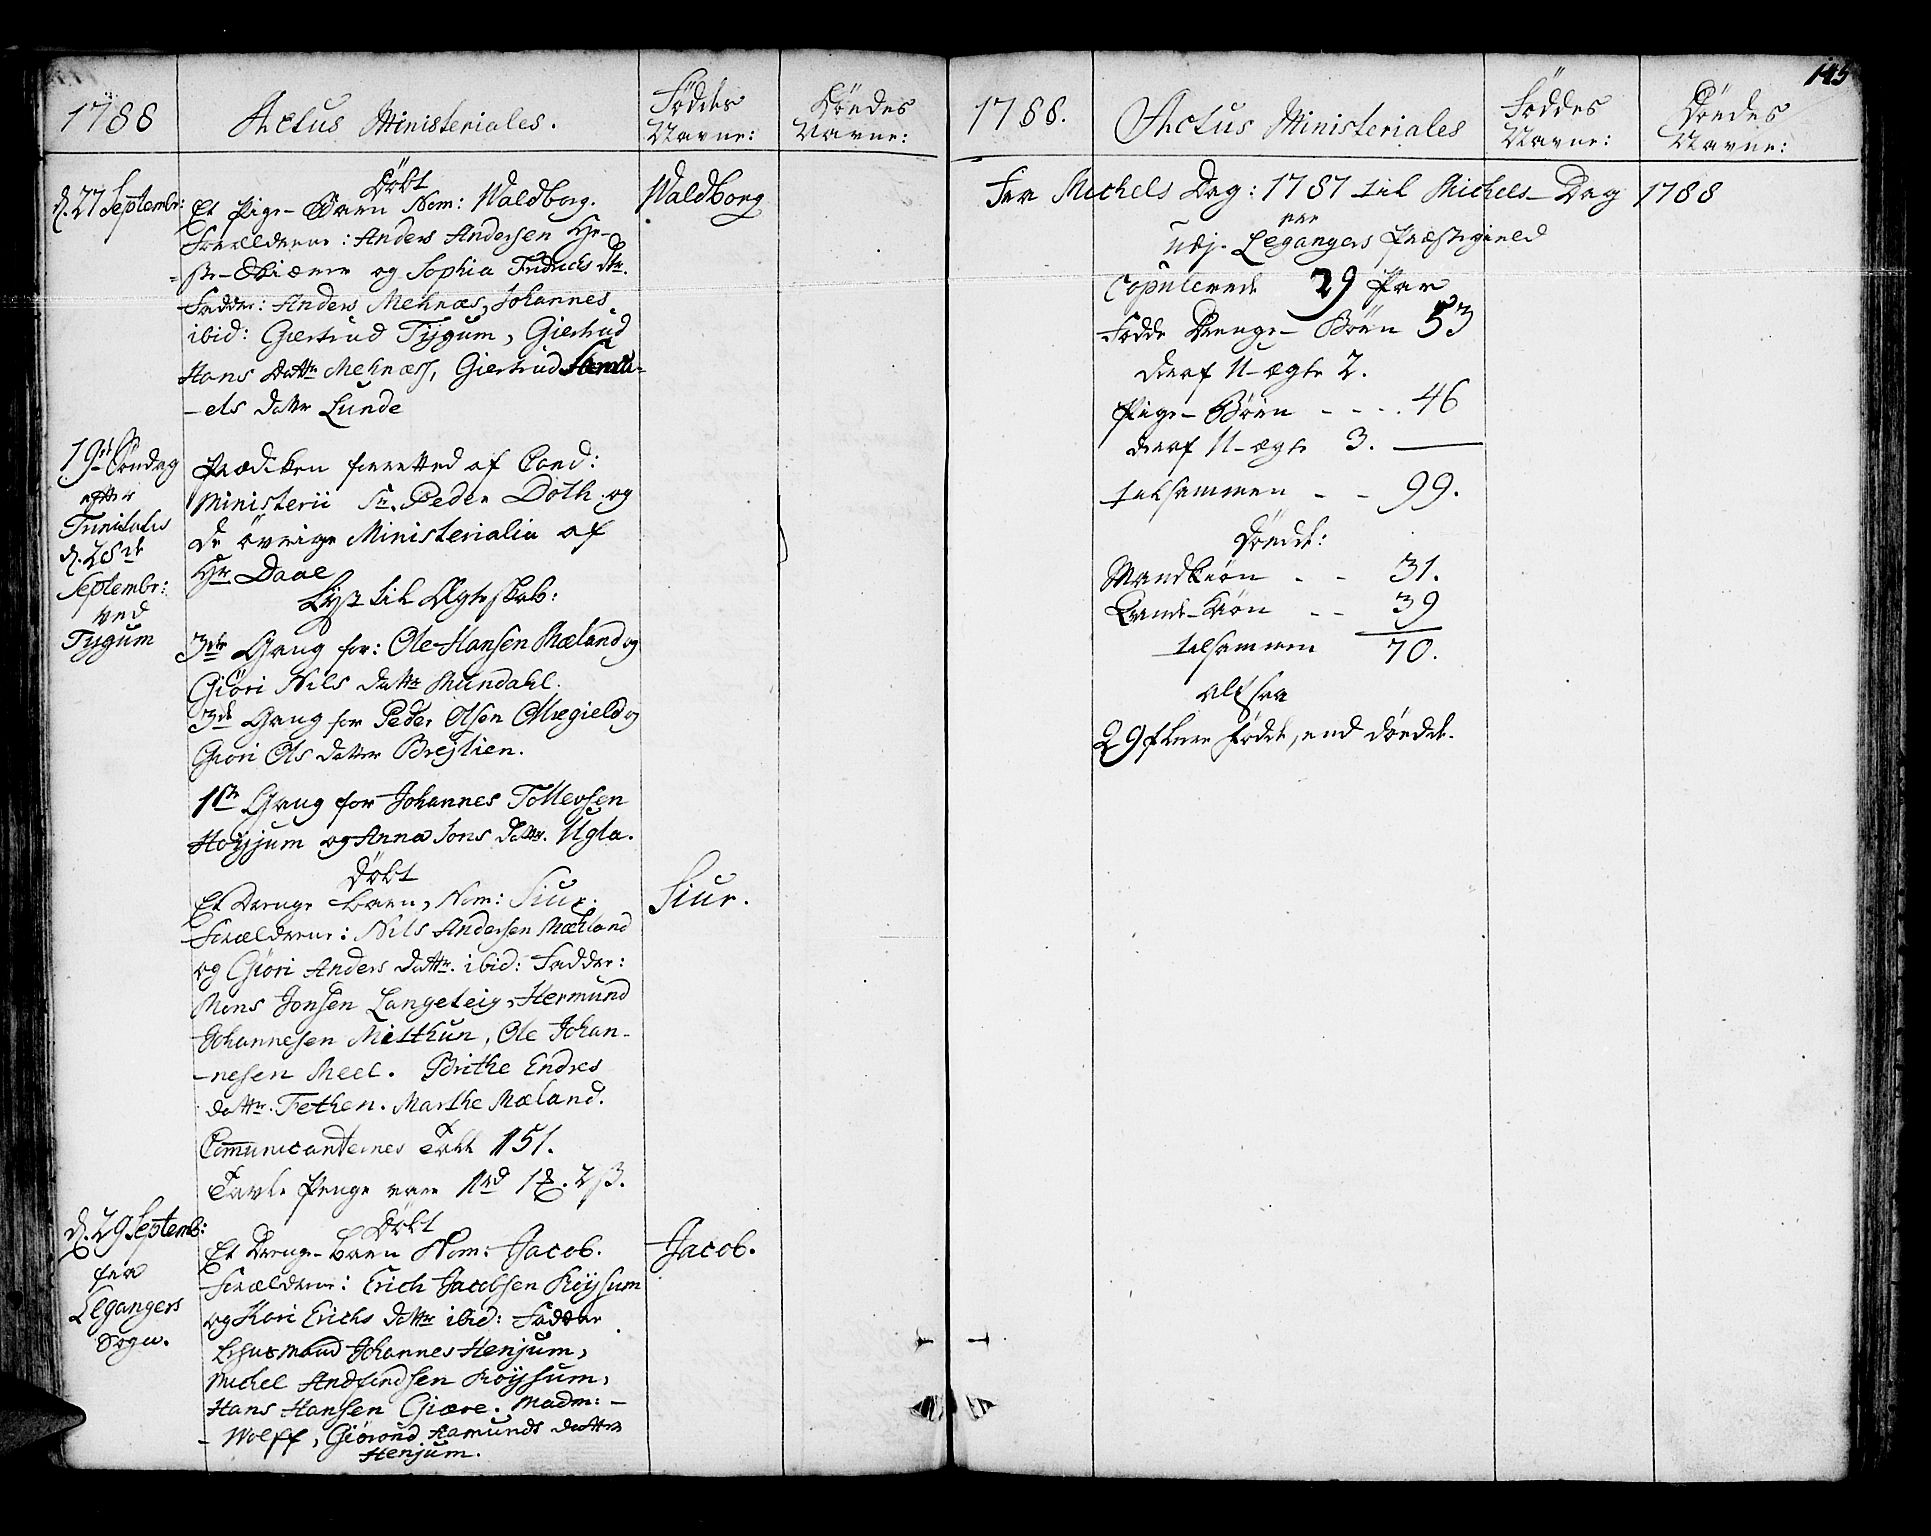 1788
Actus Ministeriales.
Føddes
Navne:
Döedes
Navne:
d. 27 Septembr:
Døbt
Et Pige-Barn Nom: Waldborg.
Waldborg
Forældrene: Anders Andersen
og Sophia Fridrichs dtr.
Fadder: Anders Mehnæs, Johannes
ibid: Giertrud Tÿgum, Giertrud
Hans Dattr Mehnæss, Giertrud Samu-
-els datr Lunde
19de Søndag
efter
Trinitatis
d. 28de
Septembr:
ved
Tygum
Prædiken forretted af Cand:
Ministerii Sr. Peder Döth og
de øvrige Ministerialia af
Hr Daae
Lyst til Ægteskab:
3de Gang for: Ole Hansen Mæland og
Giöri Nils dattr Mundahl.
3de Gang for Peder Olsen og
Giöri Ols datter Brejlien.
1ste Gang for Johannes Tollevsen
Höyjum og Anna Jons dattr. Ugla.
Døbt
Et Drenge Barn, Nom: Siur.
Siur.
Forældrene: Nils Andersen Mæhland
og Giöri Anders dattr. ibid: Fadder:
Mons Jonsen Langeteig, Hermund
Johannesen Midthun, Ole Johan-
-nesen Meel. Brithe Endres
dattr. Fethen. Marthe Mæland.
Comunicanternes Tall 151.
Tavle Penge vare 1rd 1 . 2 ß.
d. 29 Septemb:
fra
Legangers
Sogn.
Døbt
Et Drenge-barn Nom: Jacob.
Jacob.
Forældrene: Erich Jacobsen Röysum
og Kari Erichs dattr ibid: Faddere
Lehnsmand Johannes Henjum,
Michel Andfindsen Röysum,
Hans Hansen Giære. Madm: -
- Wolff, Giörond Aamunds datter
Henjum.
145
1788.
Actus Ministeriales
Föddes
Navne:
Döedes
Navne:
Fra Michels Dag: 1787 til Michels-Dag 1788
ere
udj. Legangers Præstegield
Copulerede 29 Par
Fødde Drenge-Börn 53
deraf U-ægte 2.
Pige-Börn - - - . 46
deraf U-ægte 3.
tilsammen - - 99.
Döede:
Mandkiön - - 31.
Qvinde-Kiön - - 39
tilsammen 70.
altsaa
29 flere födde, end döede.